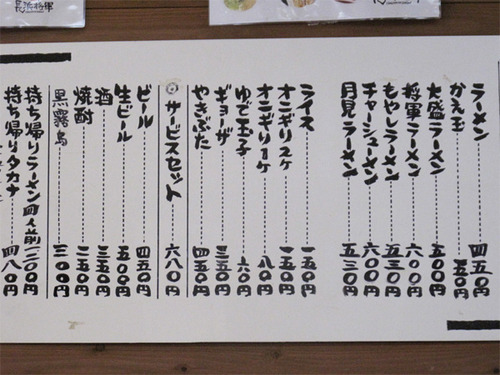 長浜将軍
ラーメン 四五〇円
かえ玉 一五〇円
大盛ラーメン 五〇〇円
将軍ラーメン 六〇〇円
もやしラーメン 五三〇円
チャーシューメン 六〇〇円
月見ラーメン 五三〇円
ライス 一五〇円
オニギリ2ヶ 一五〇円
オニギリ1ヶ 八〇円
ゆで玉子 六〇円
ギョーザ 三五〇円
やきぶた 四五〇円
◎サービスセット 六八〇円
ビール 四五〇円
生ビール 五〇〇円
酒 三五〇円
焼酎 二五〇円
黒霧島 三〇〇円
持ち帰りラーメン四人前 一二〇〇円
持ち帰りタカナ 四八〇円